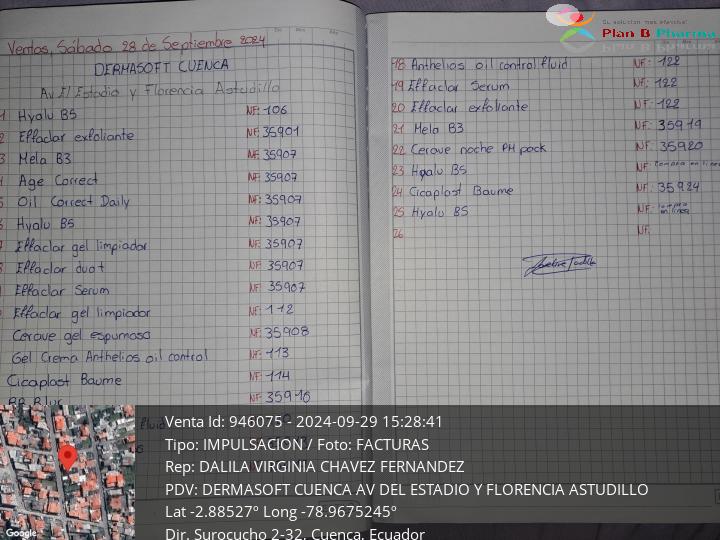 Su solución más efectiva!
Plan B Pharma
Ventas, Sábado 28 de Septiembre 2024
DERMASOFT CUENCA
Av El Estadio y Florencia Astudillo
1 Hyalu B5 NF: 106
2 Effaclar exfoliante NF: 35901
3 Mela B3 NF: 35907
Age Correct NF: 35907
5 Oil Correct Daily NF: 35907
Hyalu B5 NF: 35907
Effaclar gel limpiador NF: 35907
Effaclar duo+ NF: 35907
Effaclar Serum NF: 35907
Effaclar gel limpiador NF: 112
Cerave gel espumoso NF: 35908
Gel Crema Anthelios oil control NF: 113
Cicaplast Baume NF: 114
BB Blur NF: 35910
fluid
18 Anthelios oil control fluid NF: 122
19 Effaclar Serum NF: 122
20 Effaclar exfoliante NF: 122
21 Mela B3 NF: 35919
22 Cerave noche PM pack NF: 35920
23 Hyalu B5 NF: Compra en linea
24 Cicaplast Baume NF: 35924
25 Hyalu B5 NF: Compra en linea
26 NF:
Venta Id: 946075 - 2024-09-29 15:28:41
Tipo: IMPULSACION / Foto: FACTURAS
Rep: DALILA VIRGINIA CHAVEZ FERNANDEZ
PDV: DERMASOFT CUENCA AV DEL ESTADIO Y FLORENCIA ASTUDILLO
Lat -2.88527° Long -78.9675245°
Dir. Surocucho 2-32, Cuenca, Ecuador
Google